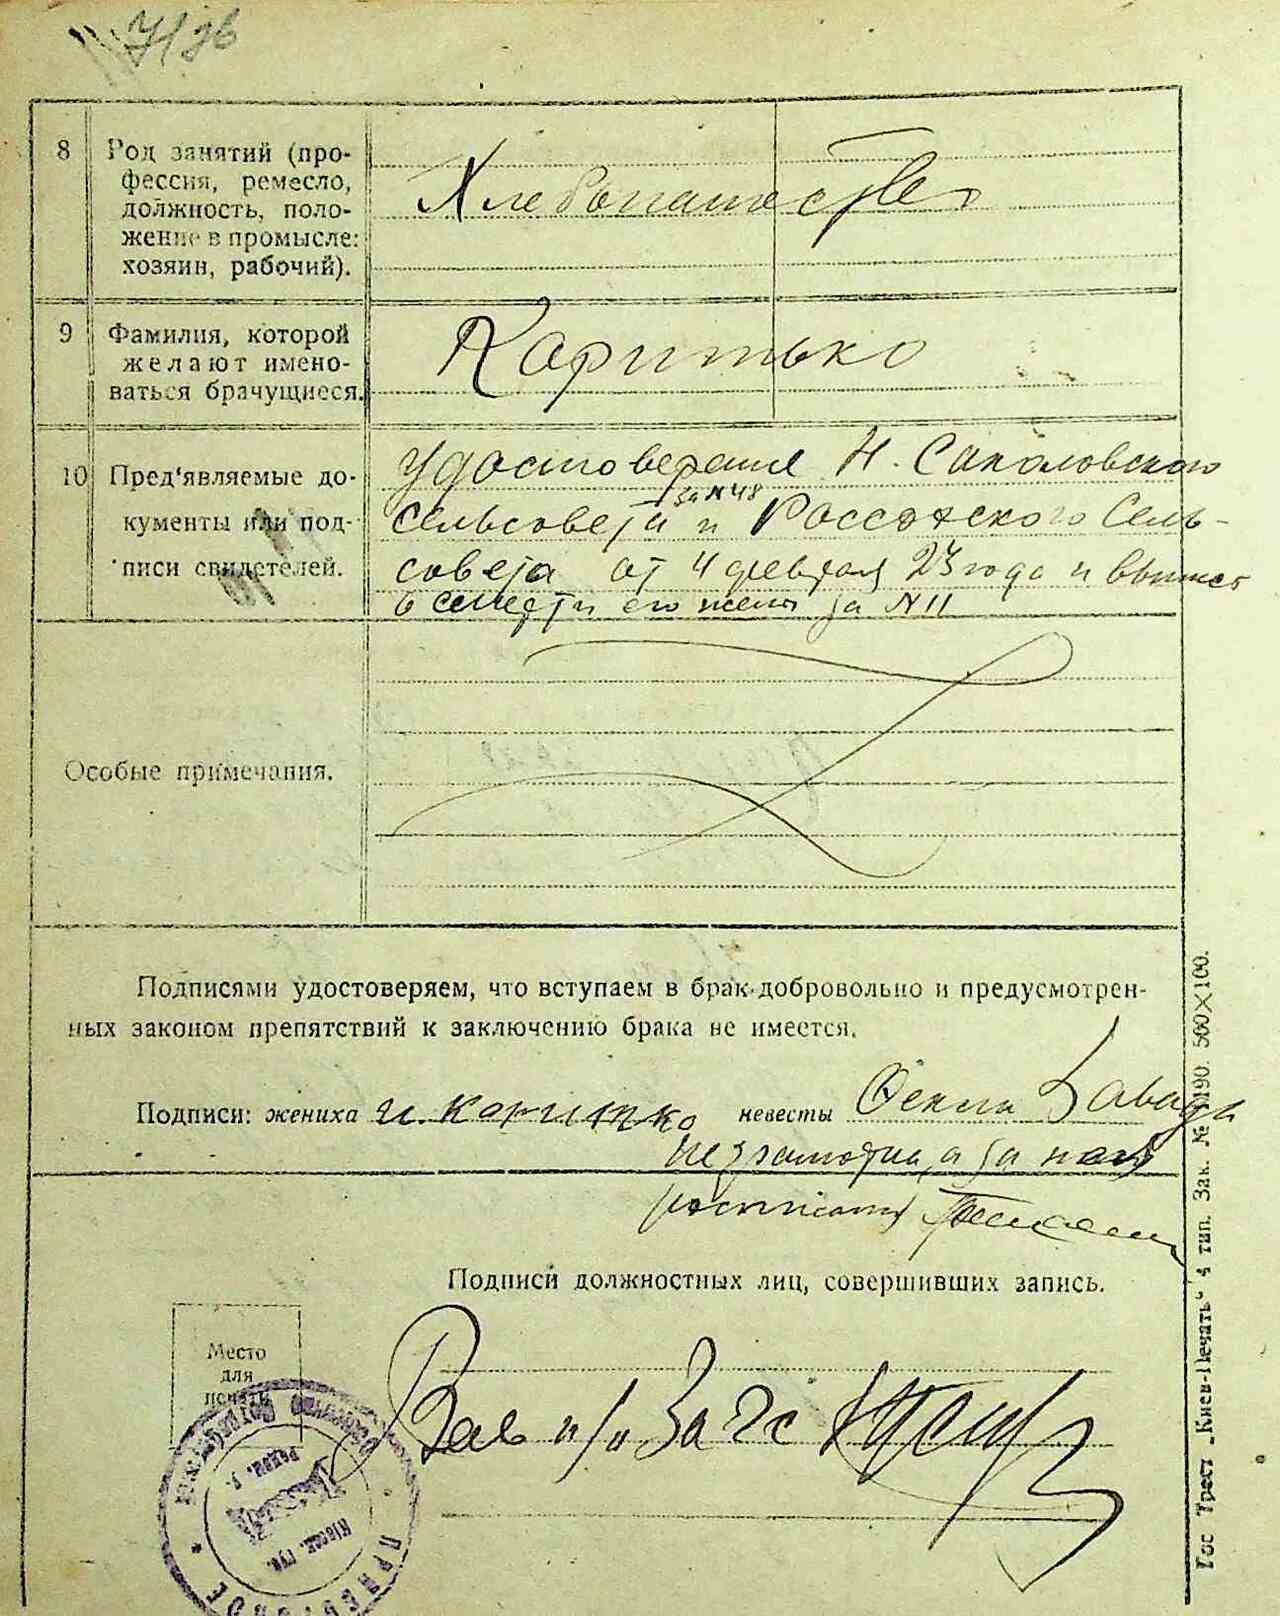 8 Род занятий (про-
фессия, ремесло,
должность, поло-
жение в промысле:
хозяин, рабочий).
Хлебопашество
9 Фамилия, которой
желают имено-
ваться брачущиеся.
Коритько
10 Пред‘являемые до-
кументы или под-
писи свидетелей.
Удостоверения Н. Соколовского
за №48
сельсовета и Россотского Сель-
совета от 4 февраля 23 года и
его жены за №11
Особые примечания.
Подписями удостоверяем, что вступаем в брак добровольно и предусмотрен-
ных законом препятствий к заключению брака не имеется.
Подписи: жениха И. Коритко невесты Фекла
неграмотна, а за нее
росписался
Подписи должностных лиц, совершивших запись.
Место
для
печати
Зав п/о Загс
Гос Трест „Киев-Печать“ 4 тип. Зак. № 1190. 500×100.